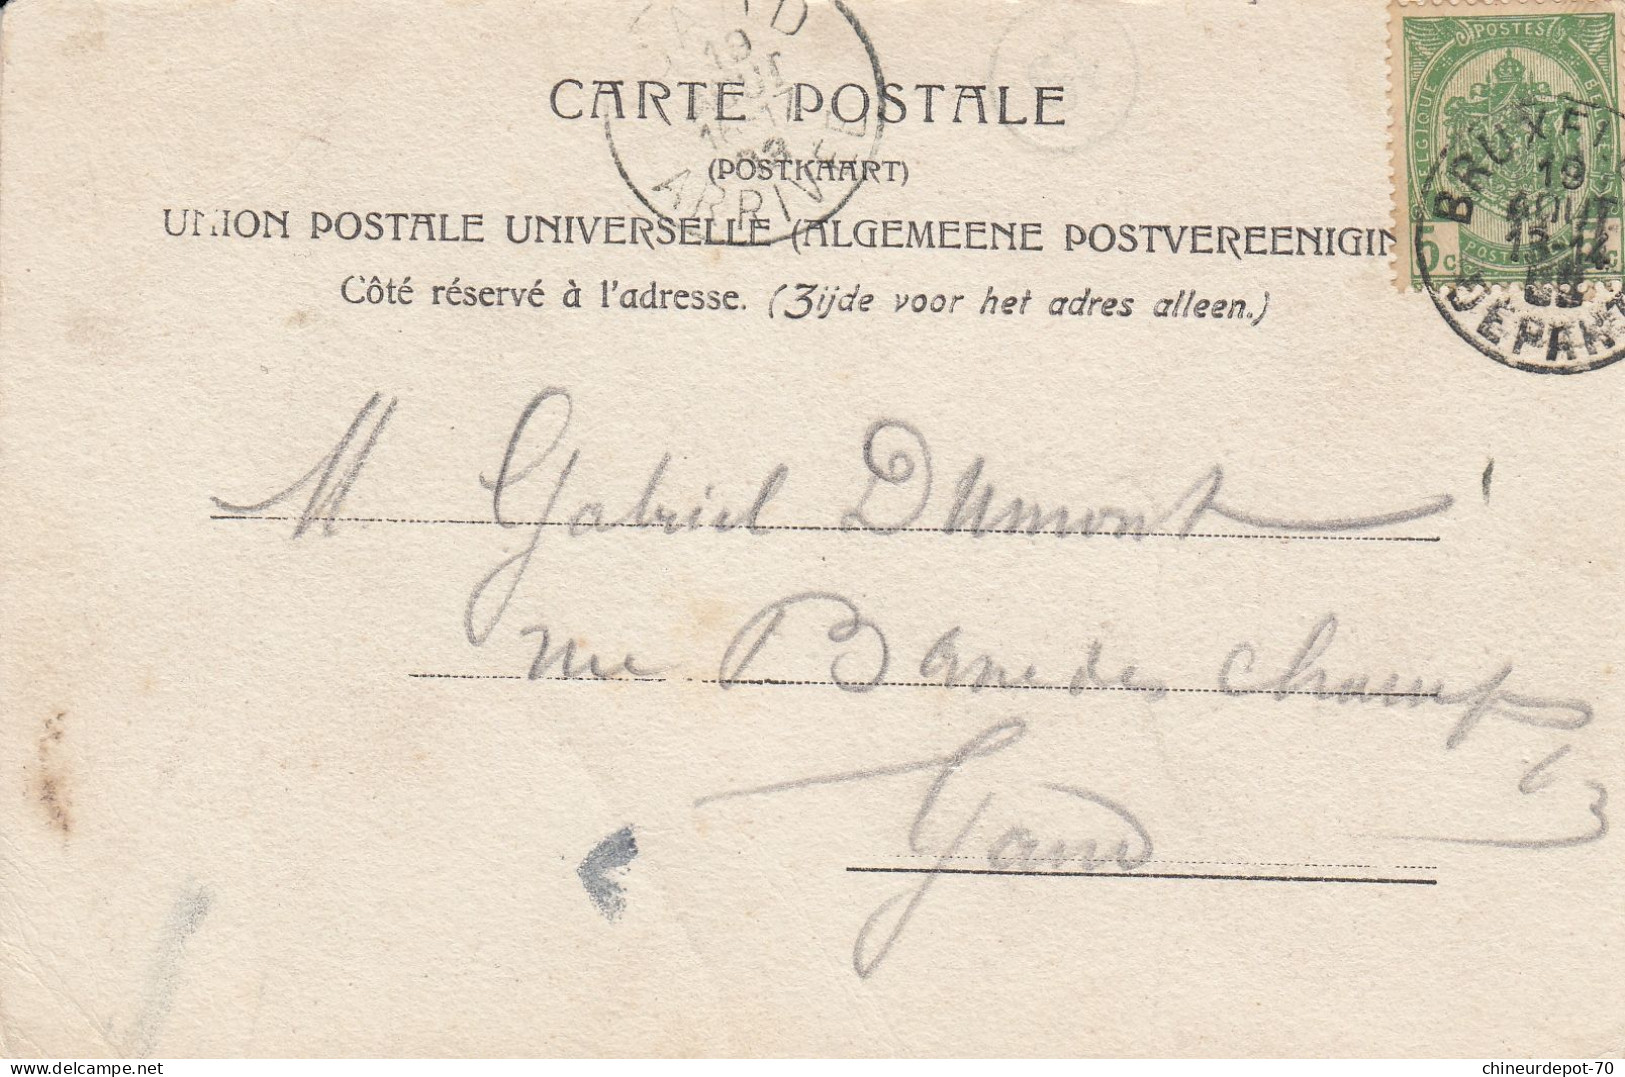 CARTE POSTALE
(POSTKAART)
UNION POSTALE UNIVERSELLE (ALGEMEENE POSTVEREENIGIN
Côté réservé à l'adresse. (Zijde voor het adres alleen.)
GAND
19
16-17
ARRIVÉE
POSTES
BELGIQUE
5 c
BRUXEL
19
AOUT
13-14
DÉPART
M Gabriel Dumont
rue Basse des champs
13
Gand
chineurdepot-70